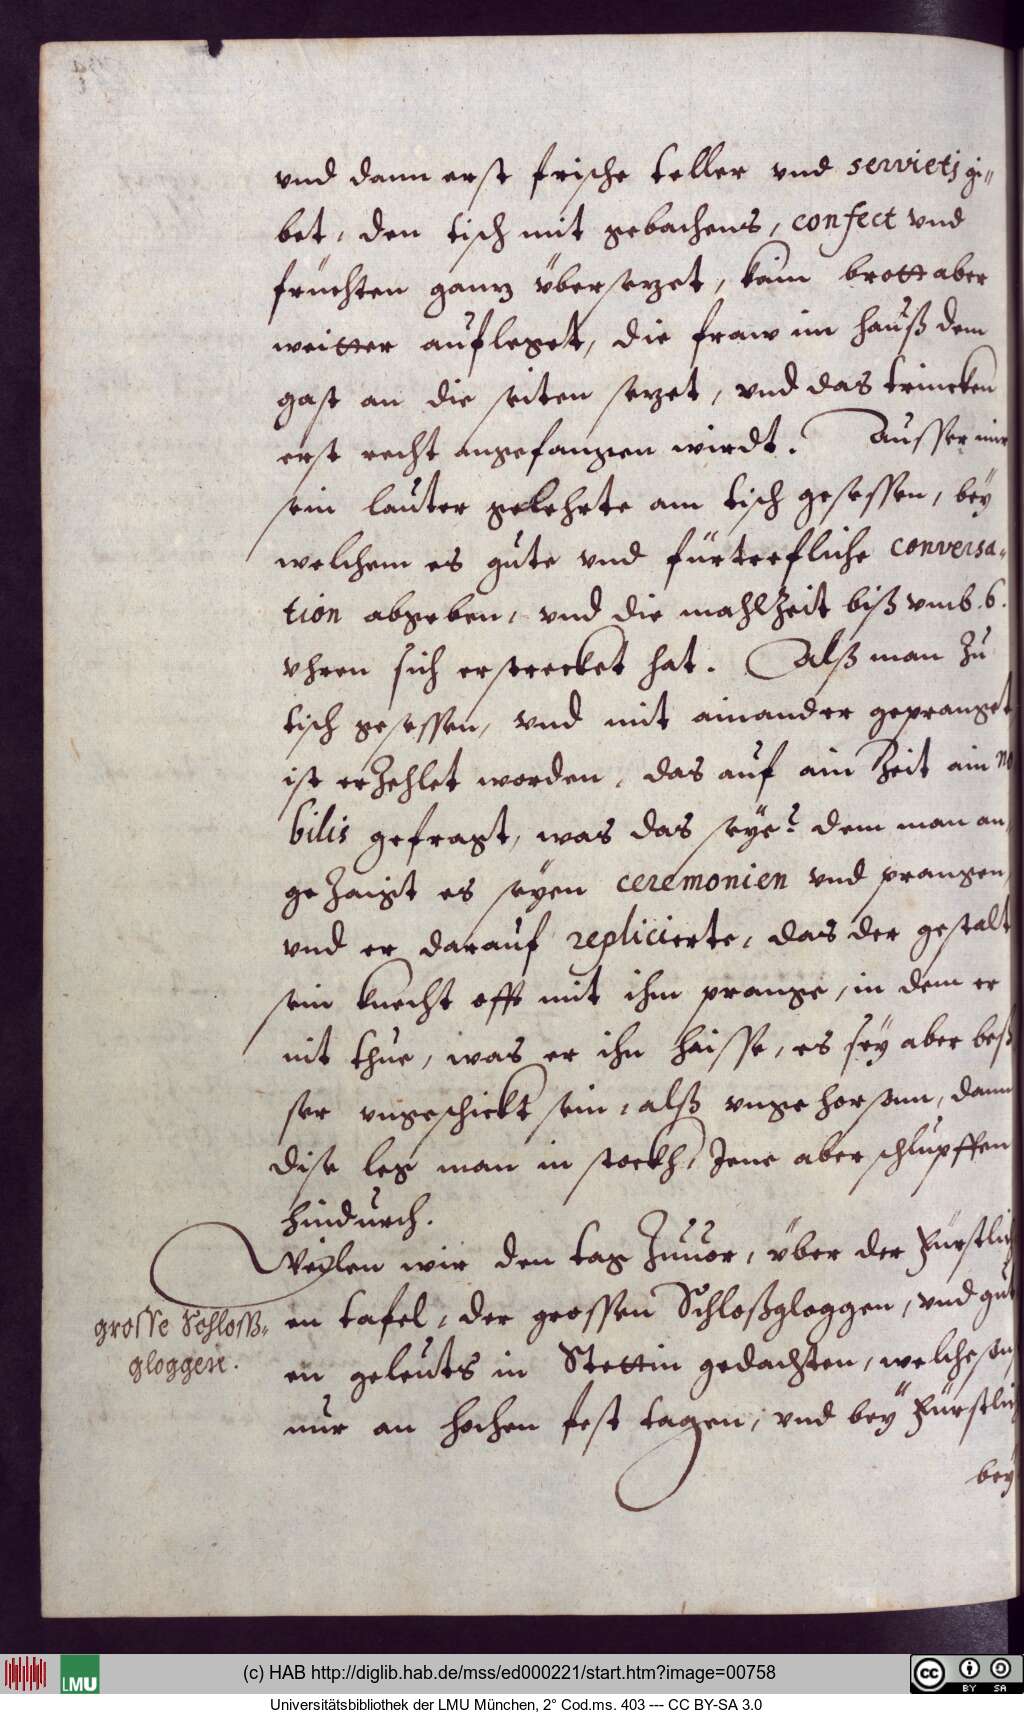 vnd dann erst frische teller vnd servietj ge⸗
bet, den tisch mit gebachens, confect vnd
früchten ganz überserzet, kain brott aber
weitter aufleget, die fraw im hauß dem
gast an die seiten sezet, vnd das trincken
erst recht angefangen wirdt. Ausser mir
sein lauter gelehrte am tisch gesessen, bey
welchem es gute vnd fürtrefliche conversa⸗
tion abgeben, vnd die mahlzeit biß vmb .6.
vhren sich erstrecket hat. Alß man zu
tisch gesessen, vnd mit ainander gepranget
ist erzehlet worden, das auf ain zeit ain no
bilis gefragt, was das seye? dem man an⸗
gezaigt es seyen ceremonien vnd prangen,
vnd er darauf replicierte, das der gestalt
sein knecht offt mit ihm prange, in dem er
nit thue, was er ihn haisse, es sey aber beß
ser vngeschickt sein, alß vngehorsam, dann
dise leg man in stockh, Jene aber schlupffen
hindurch.
Weylen wir den tag zuuor, über der Fürstlich
en tafel, der grossen Schloßgloggen, vnd gut
en geleuts in Stettin gedachten, welche son
nur an hochen fest tagen, vnd bey Fürstlich
bey
grosse Schloß⸗
gloggen.
(c) HAB http://diglib.hab.de/mss/ed000221/start.htm?image=00758
LMU
cc BY SA
Universitätsbibliothek der LMU München, 2° Cod.ms. 403 --- CC BY-SA 3.0